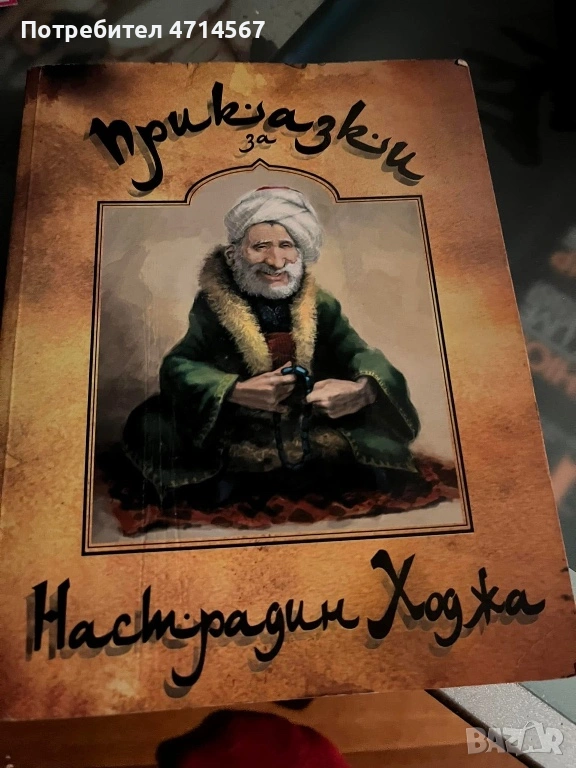 Потребител 4714567
Приказки
за
Настрадин Ходжа
BAZAR